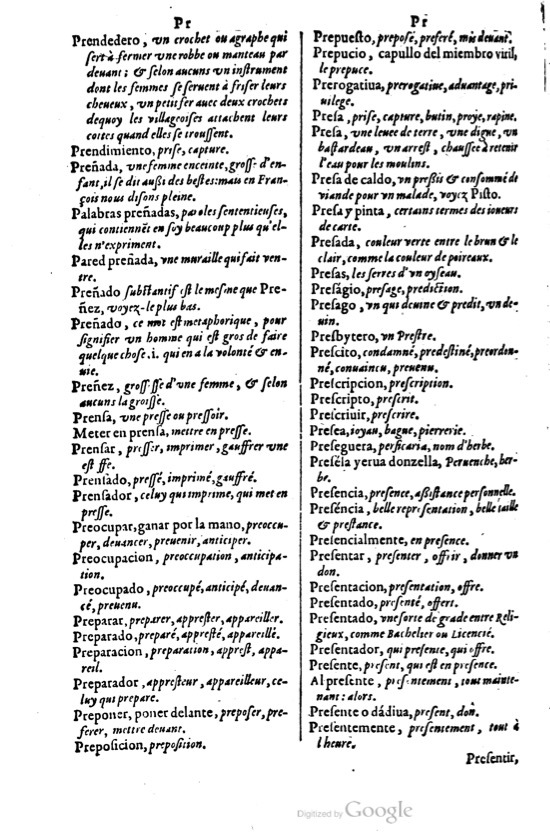 Pr
Prendedero, vn crochet ou agraphe qui
sert à fermer vne robbe ou manteau par
deuant; & selon aucuns vn instrument
dont les femmes se seruent à friser leurs
cheueux, vn petit fer auec deux crochets
dequoy les villageoises attachent leurs
cottes quand elles se troussent.
Prendimiento, prise, capture.
Preñada, vne femme enceinte, grosse d'en-
fant, il se dit aussi des bestes: mais en Fran-
çois nous disons pleine.
Palabras preñadas, paroles sententieuses,
qui contiennẽt en soy beaucoup plus qu'el-
les n'expriment.
Pared preñada, vne muraille qui fait ven-
tre.
Preñado substantif est le mesme que Pre-
ñez, voyez-le plus bas.
Preñado, ce mot est metaphorique, pour
signifier vn homme qui est gros de faire
quelque chose .i. qui en a la volonté & en-
uie.
Preñez, grossesse d'vne femme, & selon
aucuns la groisse.
Prensa, vne presse ou pressoir.
Meter en prensa, mettre en presse.
Prensar, presser, imprimer, gauffrer vne
estoffe.
Prensado, pressé, imprimé, gauffré.
Prensador, celuy qui imprime, qui met en
presse.
Preocupar, ganar por la mano, preoccu-
per, deuancer, preuenir, anticiper.
Preocupacion, preoccupation, anticipa-
tion.
Preocupado, preoccupé, anticipé, deuan-
cé, preuenu.
Preparar, preparer, apprester, appareiller.
Preparado, preparé, appresté, appareillé.
Preparacion, preparation, apprest, appa-
reil.
Preparador, appresteur, appareilleur, ce-
luy qui prepare.
Preponer, poner delante, preposer, pre-
ferer, mettre deuant.
Preposicion, preposition.
Pr
Prepuesto, preposé, preferé, mis deuant.
Prepucio, capullo del miembro viril,
le prepuce.
Prerogatiua, prerogatiue, aduantage, pri-
uilege.
Presa, prise, capture, butin, proje, rapine.
Presa, vne leuee de terre, vne digue, vn
bastardeau, vn arrest, chaussée à retenir
l'eau pour les moulins.
Presa de caldo, vn pressis & consommé de
viande pour vn malade, voyez Pisto.
Presa y pinta, certains termes des ioueurs
de carte.
Presada, couleur verte entre le brun & le
clair, comme la couleur de poireaux.
Presas, les serres d'vn oyseau.
Presagio, presage, prediction.
Presago, vn qui deuine & predit, vn de-
uin.
Presbytero, vn Prestre.
Prescito, condamné, predestiné, preordon-
né, conuaincu, preuenu.
Prescripcion, prescription.
Prescripto, prescrit.
Prescriuir, prescrire.
Presea, ioyau, bague, pierrerie.
Preseguera, persicaria, nom d'herbe.
Preséla yerua donzella, Peruenche, her-
be.
Presencia, presence, assistance personnelle.
Preséncia, belle representation, belle taille
& prestance.
Presencialmente, en presence.
Presentar, presenter, offrir, donner vn
don.
Presentacion, presentation, offre.
Presentado, presenté, offert.
Presentado, vne sorte de grade entre Reli-
gieux, comme Bachelier ou Licencié.
Presentador, qui presente, qui offre.
Presente, present, qui est en presence.
Al presente, presentement, tout mainte-
nant: alors.
Presente o dádiua, present, don.
Presentemente, presentement, tout à
l'heure.
Presentir,
Digitized by Google